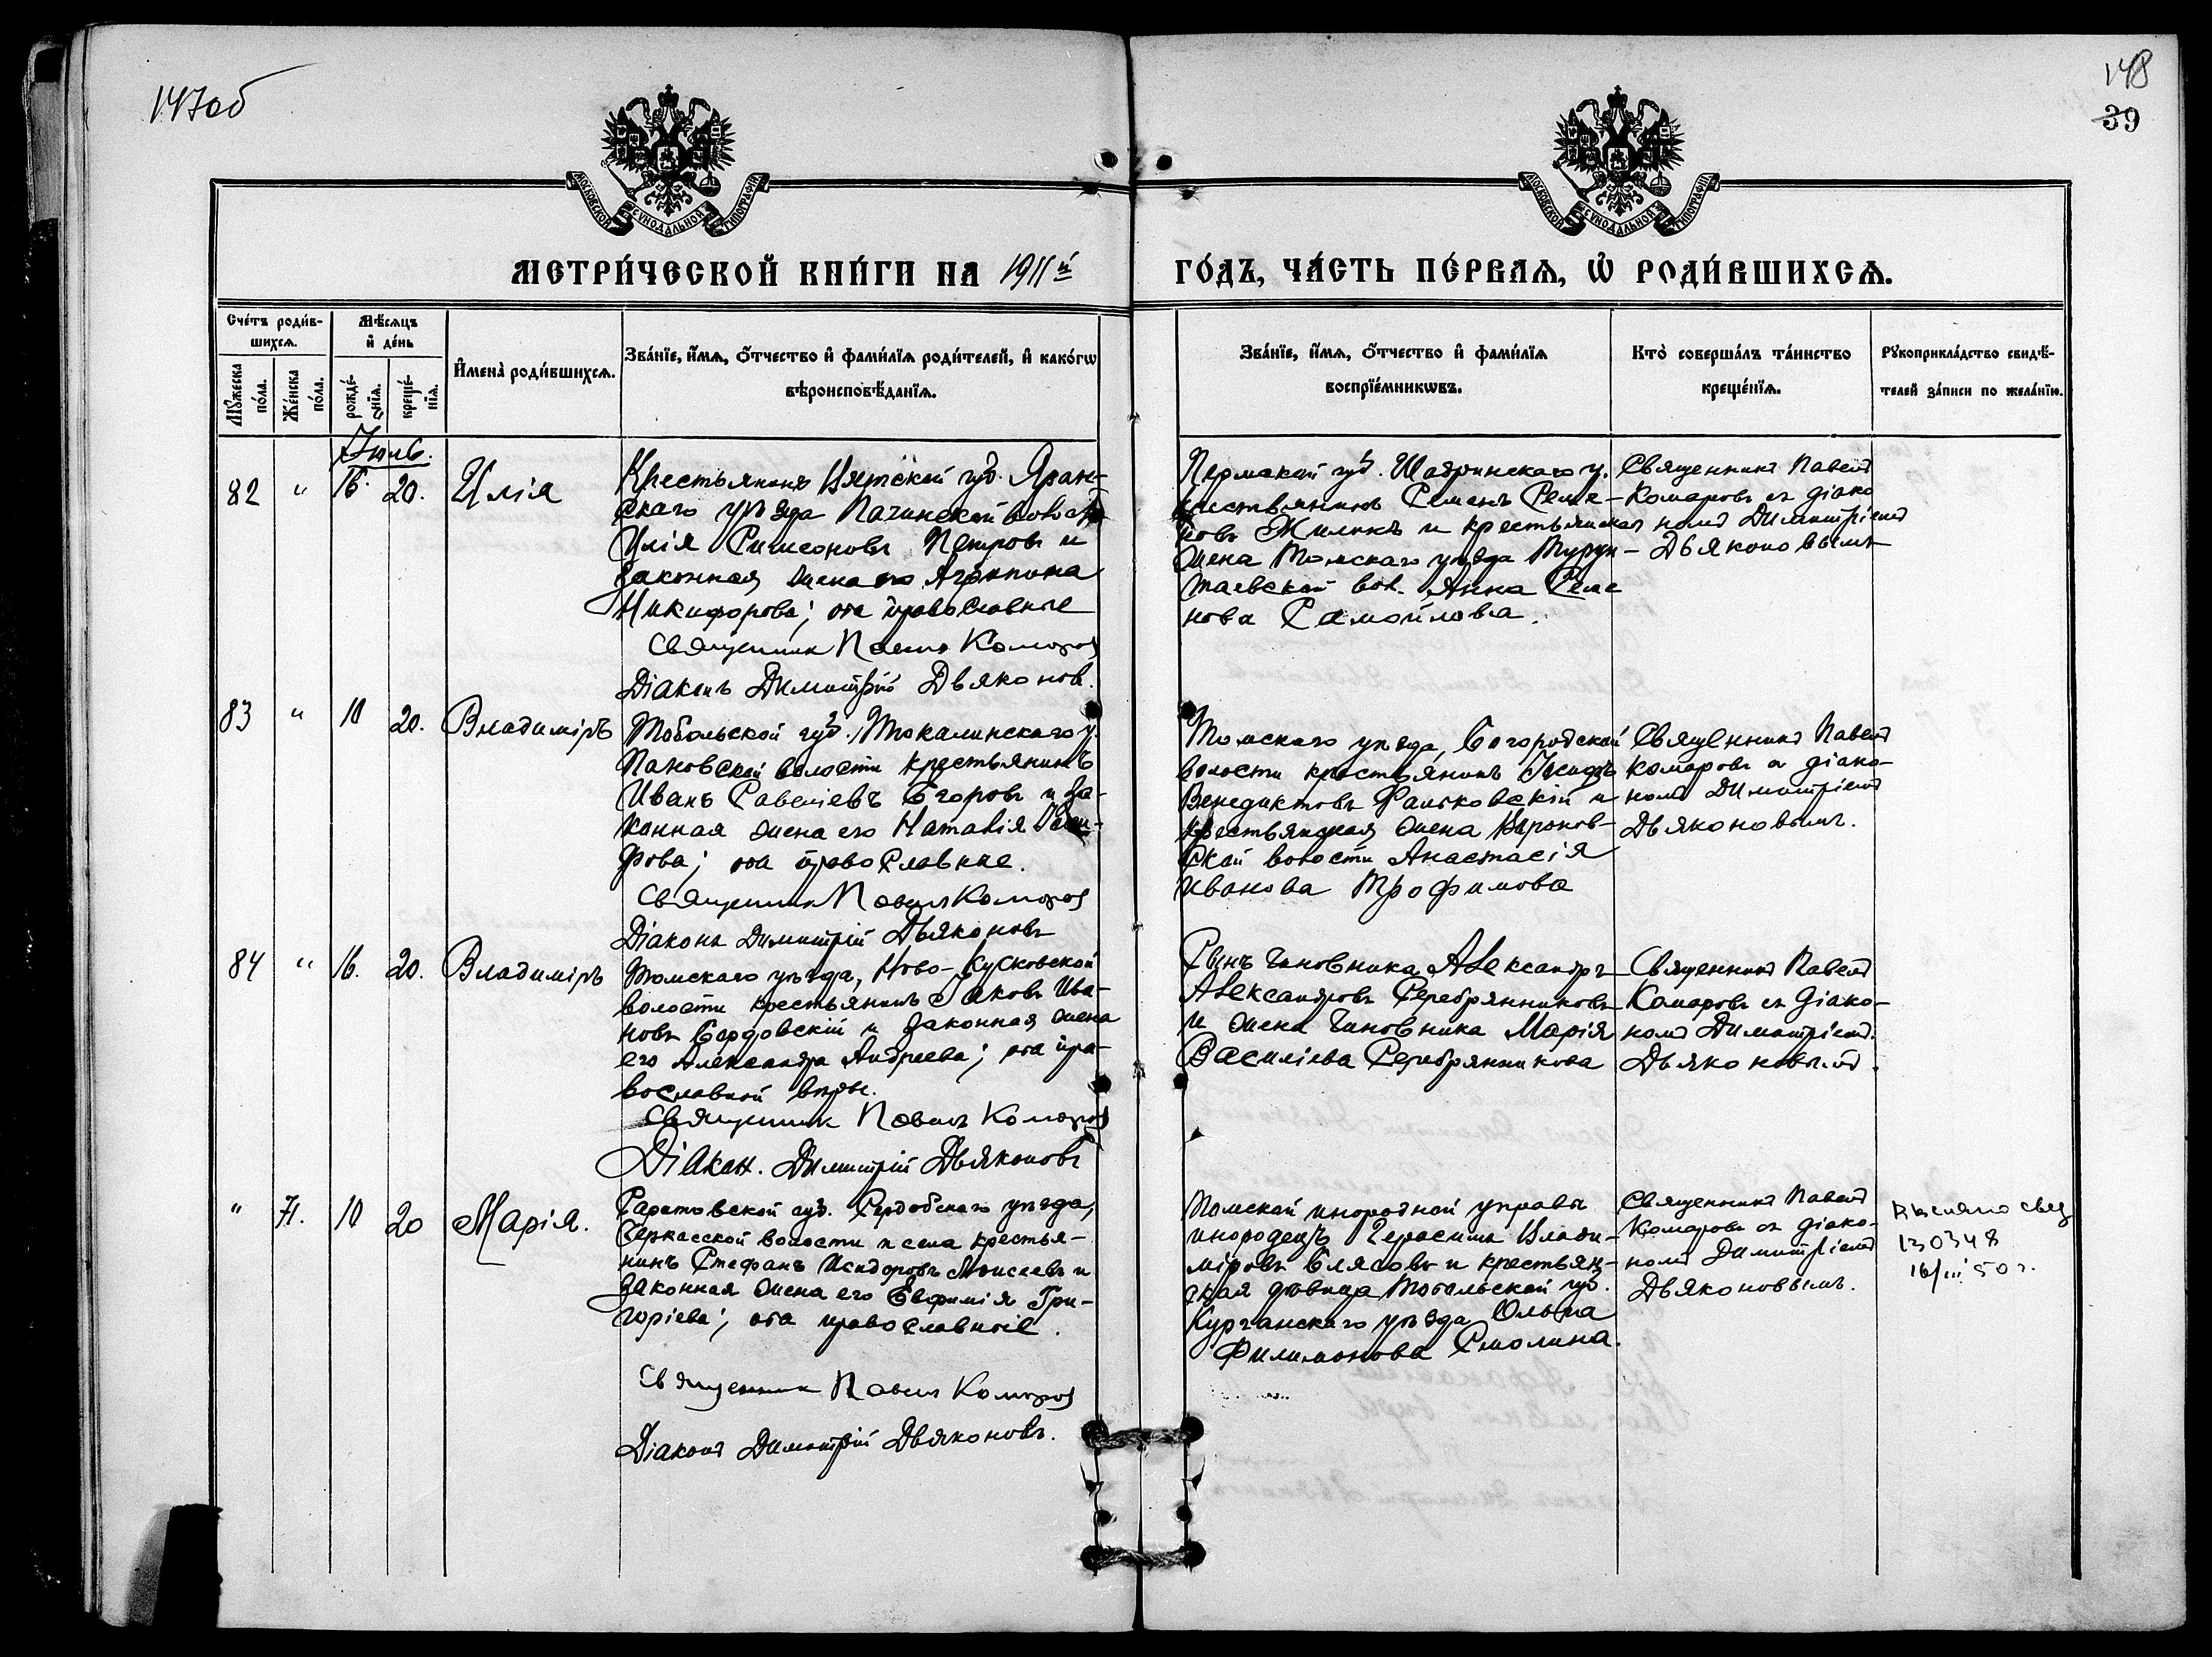 147об
148
39
МОСКОВСКОЙ СУНОДАЛЬНОЙ ТИПОГРАФІИ
МОСКОВСКОЙ СУНОДАЛЬНОЙ ТИПОГРАФІИ
МЕТРИ́ЧЕСКОЙ КНИ́ГИ НА 1911й
ГО́ДЪ, ЧА́СТЬ ПЕ́РВАѦ, Ѡ҆ РОДИ́ВШИХСѦ.
Сче́тъ роди́в-
шихсѧ.
Мꙋ́жеска по́ла.
Же́нска по́ла.
Мѣ́сѧцъ и҆ де́нь
рожде́-нїѧ.
креще́-нїѧ.
И҆мена̀ роди́вшихсѧ.
Зва́нїе, и҆́мѧ, ѻ҆́тчество и҆ фами́лїѧ роди́телей, и҆ како́гѡ
вѣроисповѣ́данїѧ.
Зва́нїе, и҆́мѧ, ѻ҆́тчество и҆ фами́лїѧ
воспрїе́мникѡвъ.
Кто̀ соверша́лъ та́инство
креще́нїѧ.
Рꙋкоприкла́дство свидѣ́-
телей за́писи по жела́нїю.
Іюль.
82 " 16. 20. Илія
Крестьянинъ Вятской губ. Яран-
скаго уѣзда Пачинской волости
Илія Симеоновъ Петровъ и
законная жена его Агрипина
Никифорова; оба православные
Священник Павел Комаров
Діаконъ Димитрій Дьяконов.
Пермской губ. Шадринскаго у.
крестьянинъ Семенъ Семе-
новъ Жилинъ и крестьянская
жена Томскаго уѣзда Турун-
таевской вол. Анна Семе
нова Самойлова.
Священникъ Павелъ
Комаровъ съ діако
номъ Димитріемъ
Дьяконовымъ
83 " 10 20. Владиміръ
Тобольской губ. Тюкалинскаго у.
Пановской волости крестьянинъ
Иванъ Савеліевъ Егоровъ и за-
конная жена его Наталія
оба православные.
Священник Павел Комаров
Діаконъ Димитрій Дьяконовъ
Томскаго уѣзда, Богородской
волости крестьянинъ
Венедиктовъ Фальковскій и
крестьянская жена Воронов-
ской волости Анастасія
Иванова Трофимова
Священникъ Павелъ
Комаровъ съ діако-
номъ Димитріемъ
Дьяконовымъ.
84 " 16. 20. Владиміръ
Томскаго уѣзда, Ново-Кусковской
волости крестьянинъ Іаковъ Ива-
новъ Бердовскій и законная жена
его Александра Андреева; оба пра-
вославной вѣры.
Священник Павел Комаров
Діакон. Димитрій Дьяконовъ
Сынъ чиновника Александръ
Александровъ Серебрянниковъ
и жена чиновника Марія
Василіева Серебрянникова
Священникъ Павелъ
Комаровъ съ діако-
номъ Димитріемъ
Дьяконовымъ.
" 71. 10 20 Марія.
Саратовской губ. Сердобскаго уѣзда,
Черкасской волости и села крестья-
нинъ Стефанъ Исидоровъ Моисеевъ и
законная жена его Евфимія Гри-
горіева; оба православные.
Священник Павел Комаров
Діаконъ Димитрій Дьяконовъ.
Томской инородной управы
инородецъ Герасимъ Влади-
міровъ Елясовъ и крестьян-
ская дѣвица Тобольской губ.
Курганскаго уѣзда Ольга
Филимонова Смолина.
Священникъ Павелъ
Комаровъ съ діако-
номъ Димитріемъ
Дьяконовымъ.
Выслано свид
130348
16/III 50 г.